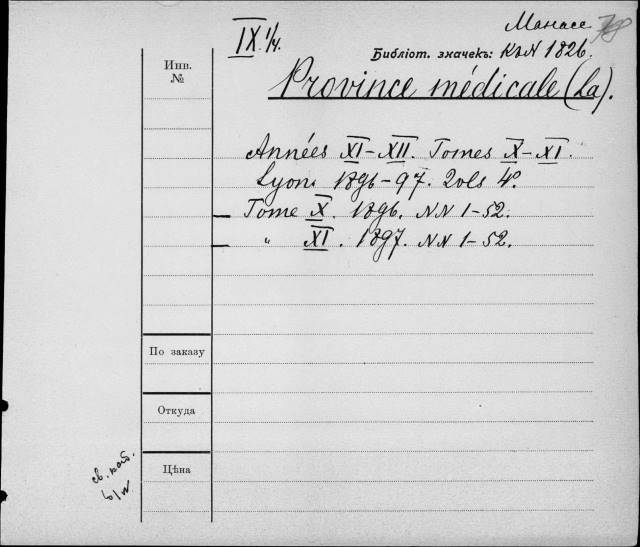 Манасе
IX. 1/4.
Библіот. значекъ: КэN 1826.
Инв.
№
Province médicale (La).
Années XI-XII. Tomes X-XI.
Lyon. 1896-97. 2 vols 4°.
Tome X. 1896. NN 1-52.
" XI. 1897. NN 1-52.
По заказу
Откуда
Цѣна
св.